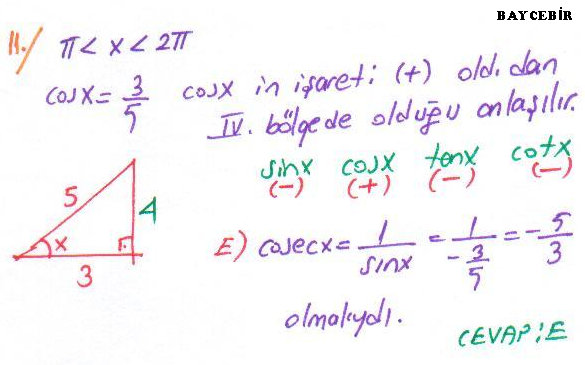 BAYCEBİR
11./ π < x < 2π
cosx = 3/5 cosx in işareti (+) old. dan
IV. bölgede olduğu anlaşılır.
sinx cosx tanx cotx
(-) (+) (-) (-)
5 4 x 3
E) cosecx = 1/sinx = 1/(-3/5) = -5/3
olmalıydı.
CEVAP: E